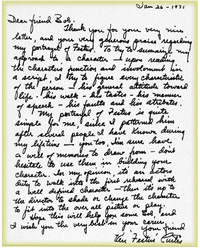 Jan 26 - 1971
Dear friend Bob,
Thank you for your very nice
letter, and your very generous praise, regarding
my portrayal of Festus. To try to summarize my
approach to a character — upon reading
the characters function and involvement in
a script, I try to figure every characteristic
of the person — his general attitude toward
life — his work — his tastes — his manner
of speech — his faults and his attributes.
My portrayal of Festus is quite
simple for me, since I patterned him
after several people I have known during
my lifetime — you too, I'm sure have
a well of memories to draw from — don't
hesitate to use them in building your
character. In my opinion, its an actors
duty to walk into the first rehearsal with
a well defined character — then its up to
the director to shade or change the character
to fit into the over all picture or play.
Hope this will help you some Bob, and
I wish you the very best in your career
Your friend
Ken "Festus" Curtis